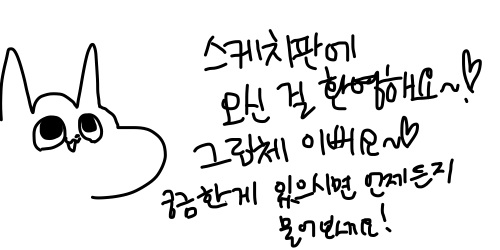 스케치판에
오신 걸 환영해요~♡
그림체 이뻐요~♡
궁금한게 있으시면 언제든지
물어보세요!